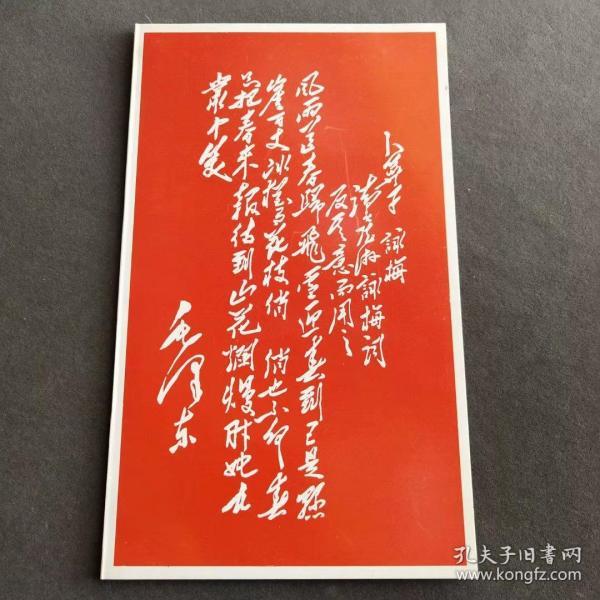 卜算子 詠梅
讀陸游詠梅詞
反其意而用之
風雨送春歸飛雪迎春到已是懸
崖百丈冰猶有花枝俏 俏也不争春
只把春来報待到山花爛熳时她在
叢中笑
毛澤东
孔夫子旧書网
www.kongfz.com